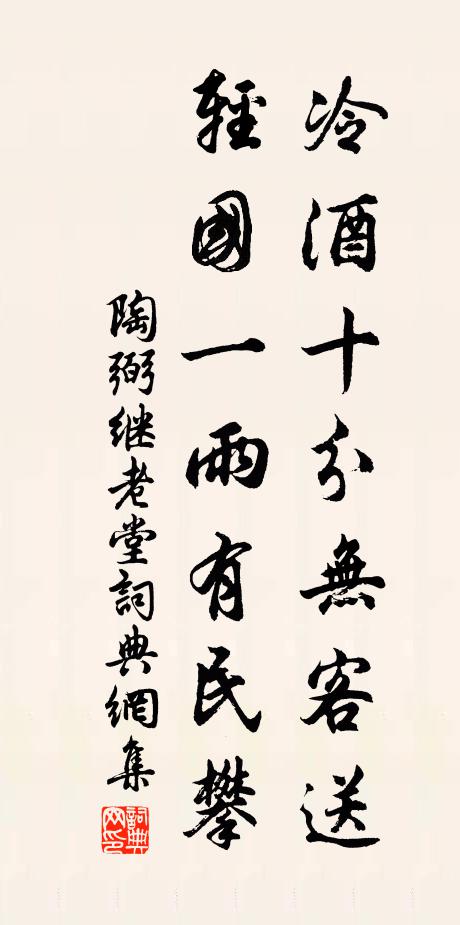 冷酒十分無客送
輕國一雨有民攀
陶弼继老堂詞典網集
詞典網印